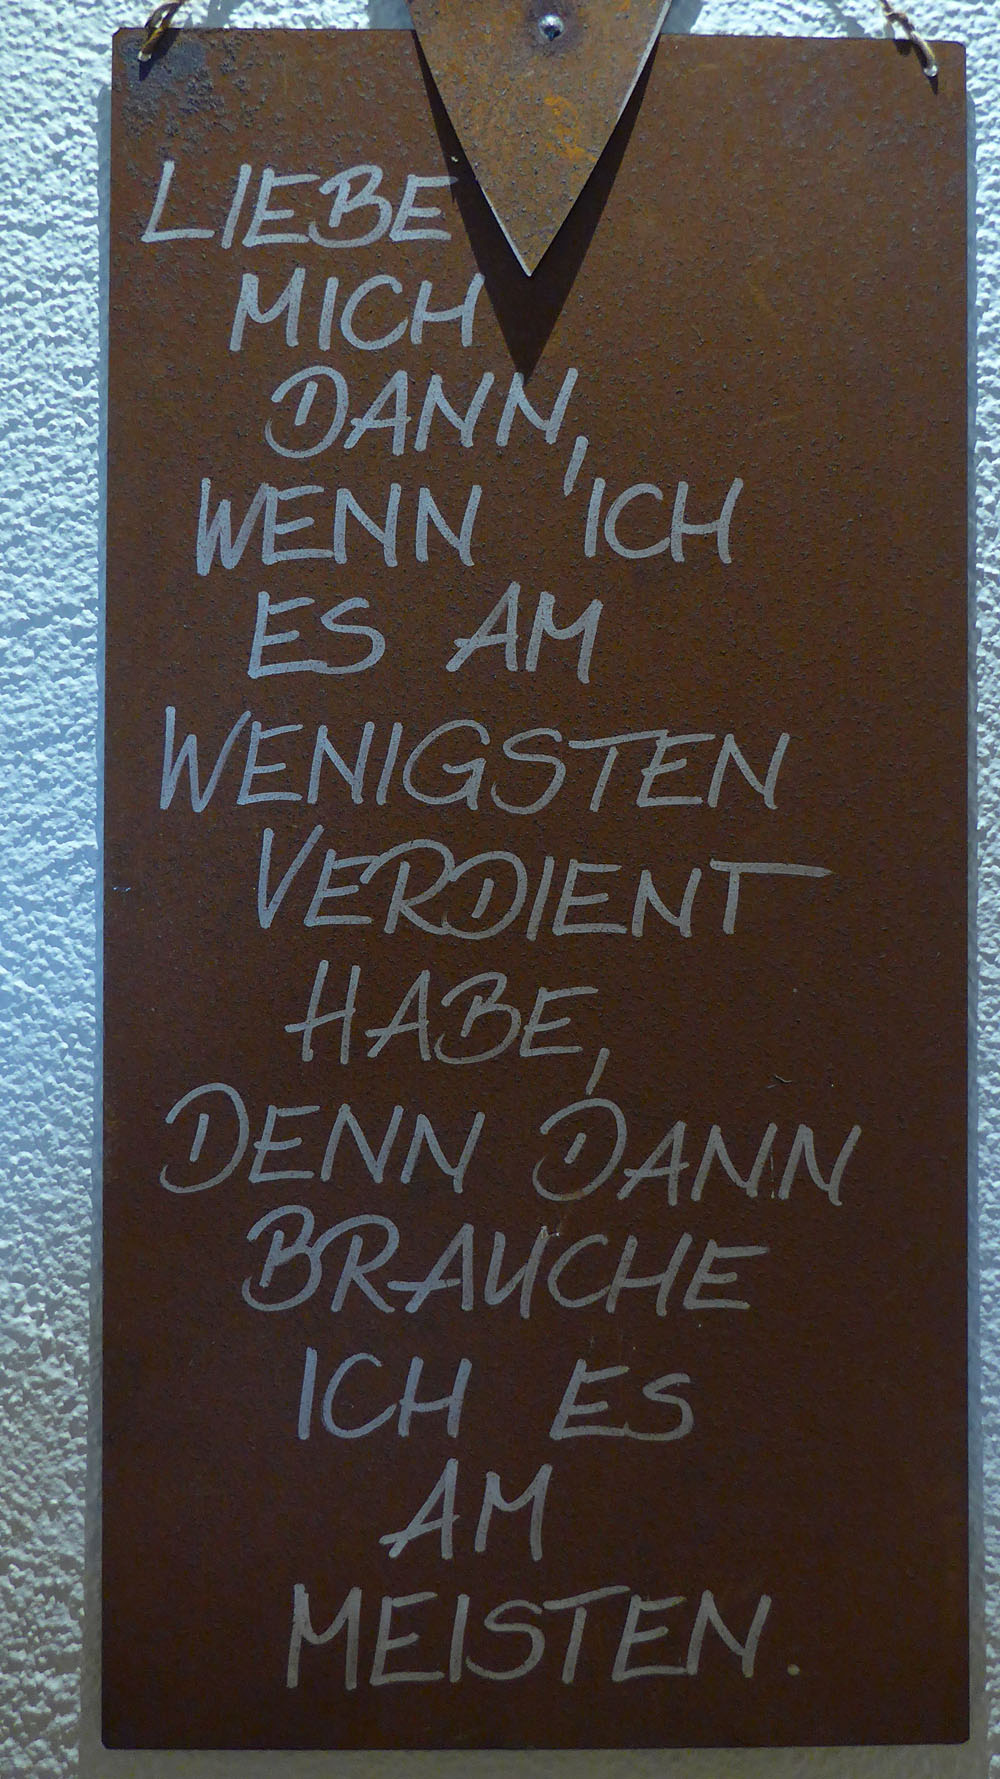 LIEBE
MICH
DANN,
WENN ICH
ES AM
WENIGSTEN
VERDIENT
HABE,
DENN DANN
BRAUCHE
ICH ES
AM
MEISTEN.